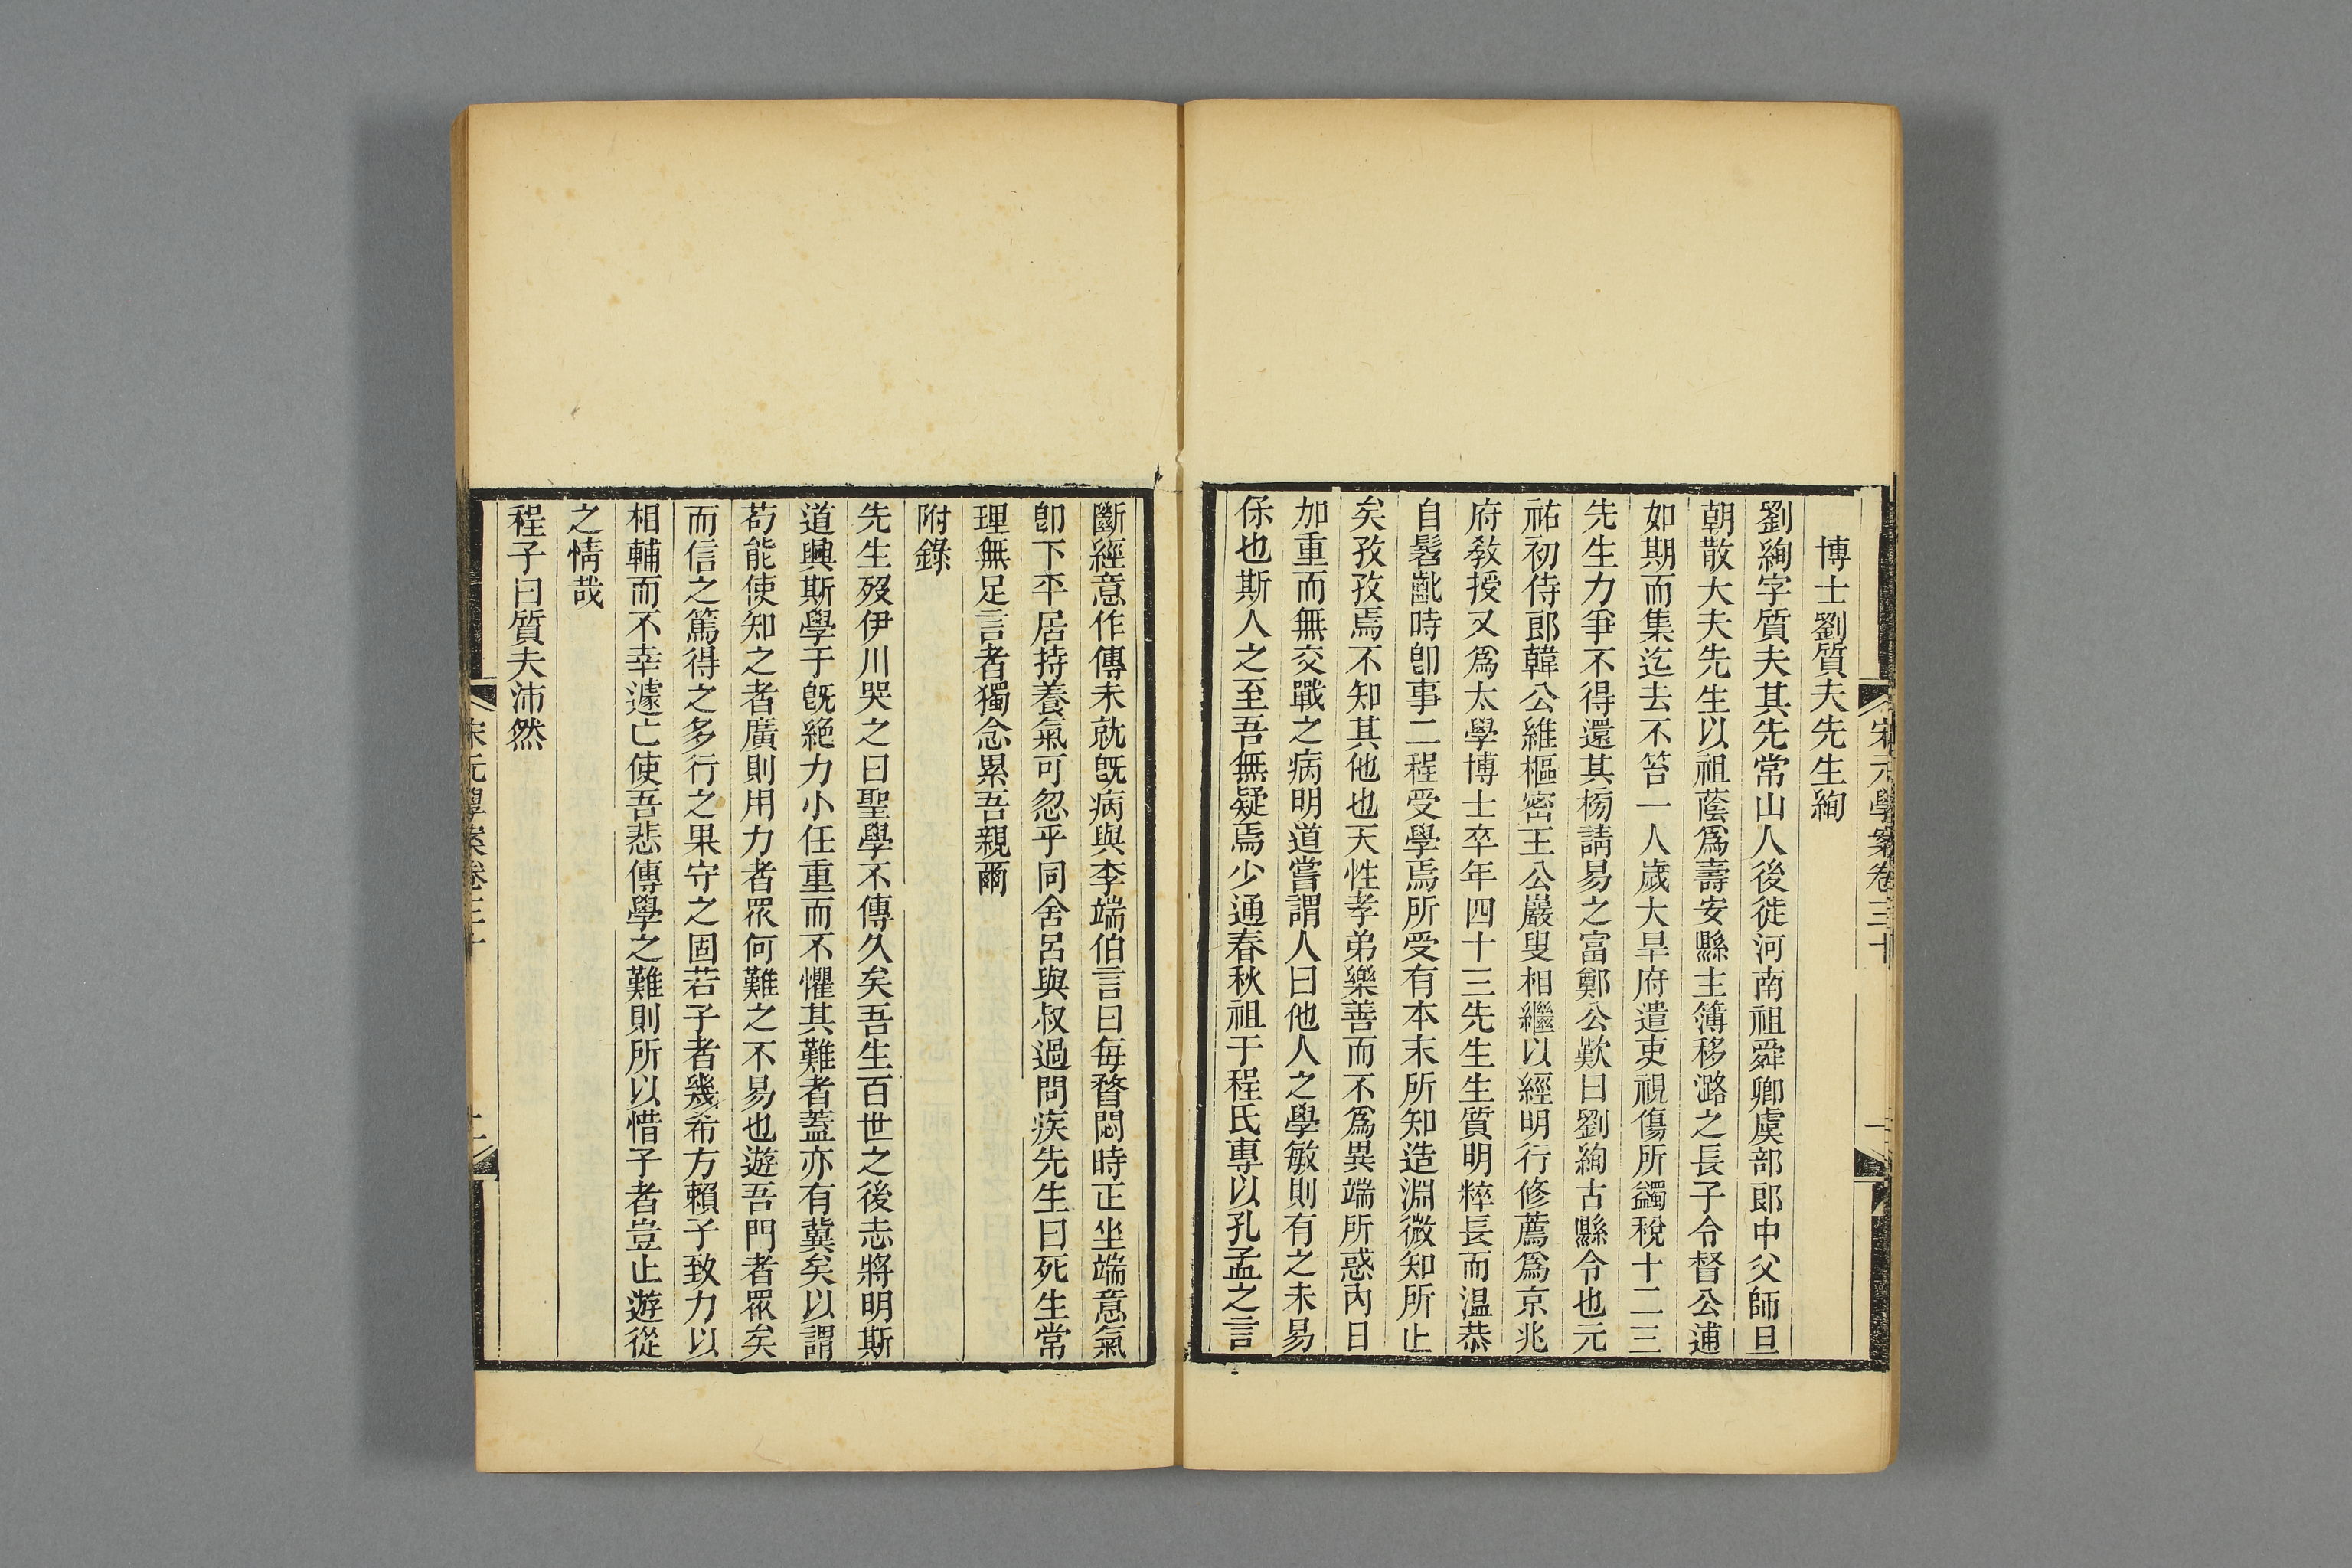 宋元學案卷三十
博士劉質夫先生絢
劉絢字質夫其先常山人後徙河南祖舜卿虞部郎中父師旦
朝散大夫先生以祖蔭爲壽安縣主簿移潞之長子令督公逋
如期而集迄去不笞一人歲大旱府遣吏視傷所蠲稅十二三
先生力爭不得還其楊請易之富鄭公歎曰劉絢古縣令也元
祐初侍郎韓公維樞密王公巖叟相繼以經明行修薦爲京兆
府敎授又爲太學博士卒年四十三先生生質明粹長而溫恭
自髫齔時卽事二程受學焉所受有本末所知造淵微知所止
矣孜孜焉不知其他也天性孝弟樂善而不爲異端所惑內日
加重而無交戰之病明道嘗謂人曰他人之學敏則有之未易
保也斯人之至吾無疑焉少通春秋祖于程氏專以孔孟之言
斷經意作傳未就旣病與李端伯言曰每瞀悶時正坐端意氣
卽下平居持養氣可忽乎同舍呂與叔過問疾先生曰死生常
理無足言者獨念累吾親爾
附錄
先生歿伊川哭之曰聖學不傳久矣吾生百世之後志將明斯
道興斯學于旣絕力小任重而不懼其難者蓋亦有冀矣以謂
苟能使知之者廣則用力者眾何難之不易也遊吾門者眾矣
而信之篤得之多行之果守之固若子者幾希方賴子致力以
相輔而不幸遽亡使吾悲傳學之難則所以惜子者豈止遊從
之情哉
程子曰質夫沛然
宋元學案卷三十